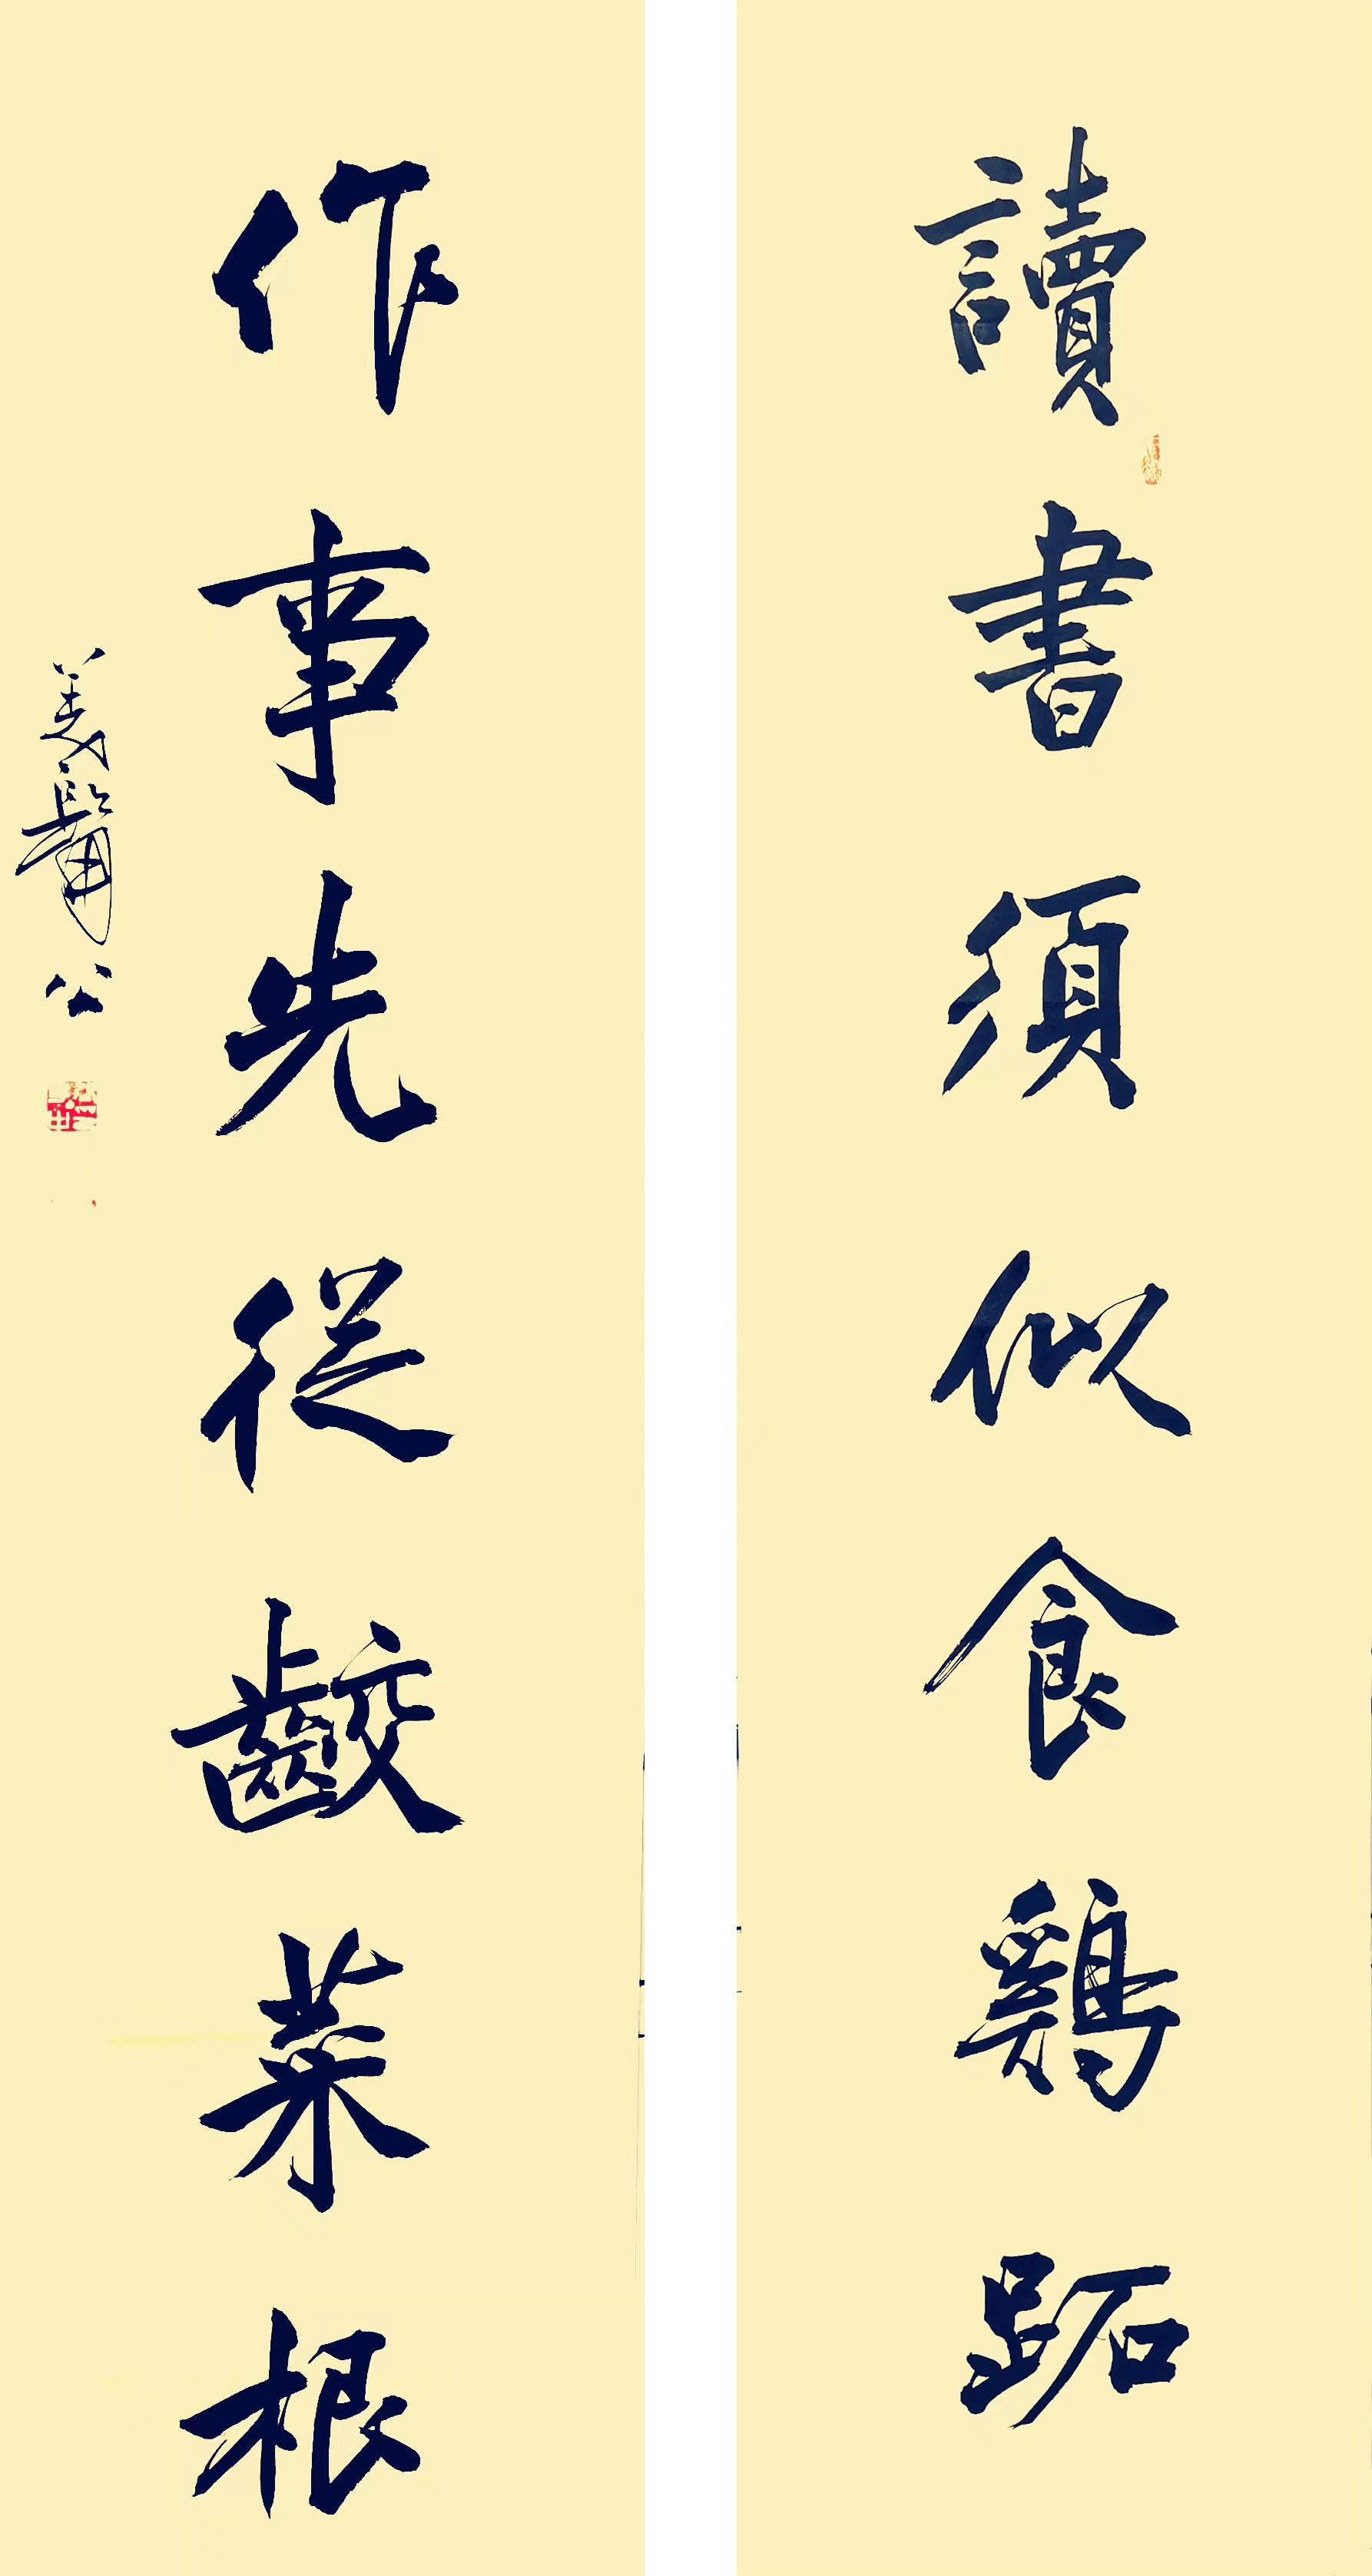 讀書須似食鷄跖
作事先從齩菜根
美髯公